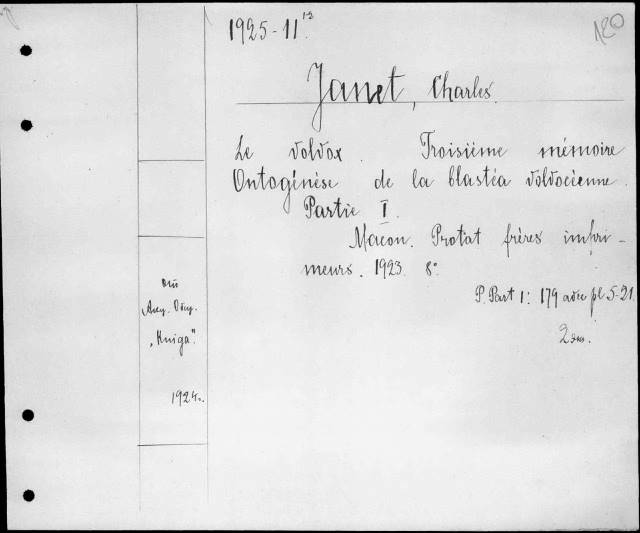 1925-11¹²
120
Janet, Charles.
Le Volvox. Troisième mémoire
Ontogénèse de la blastéa volvocéenne.
Partie I.
Macon. Protat frères impri-
meurs. 1923. 8°.
P. Part 1: 179 avec pl 5-21.
2 экз.
Отъ
„Kniga".
1924г.